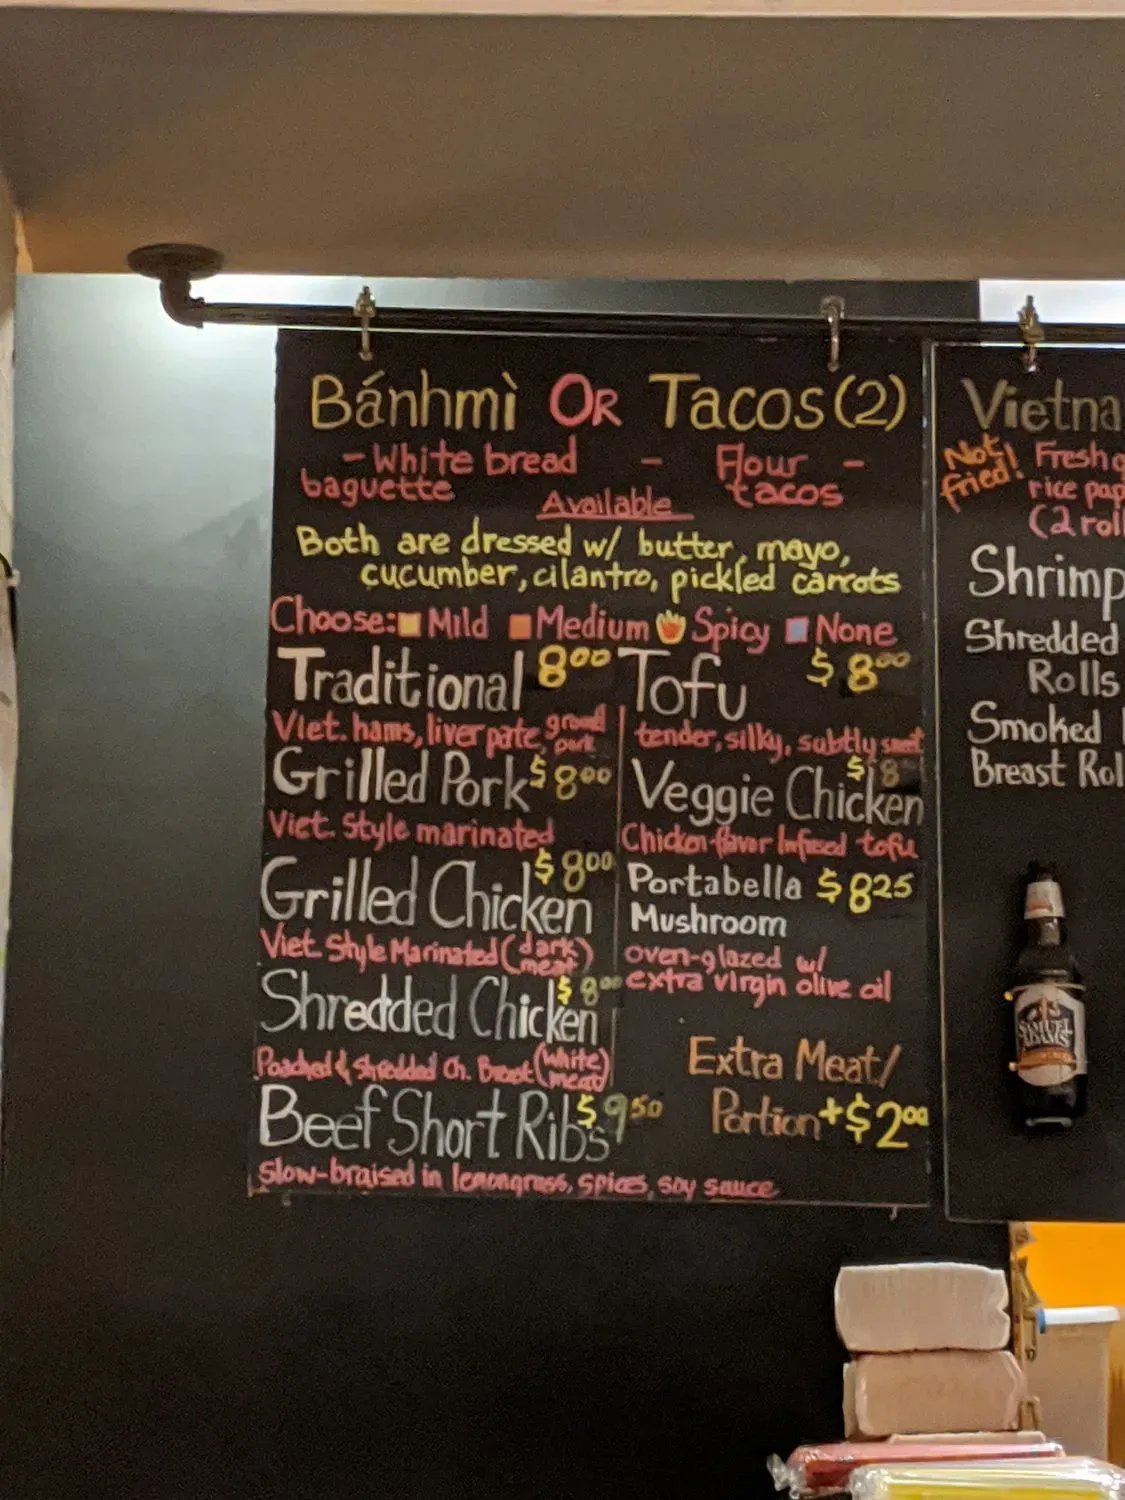 Bánhmì OR Tacos (2)
- White bread - Flour -
baguette tacos
Available
Both are dressed w/ butter, mayo,
cucumber, cilantro, pickled carrots
Choose: Mild Medium Spicy None
Traditional 8.00
Viet. hams, liver pate, ground
pork
Grilled Pork $8.00
Viet. Style marinated
Grilled Chicken $8.00
Viet. Style Marinated (dark
meat)
Shredded Chicken $8.00
Poached & Shredded Ch. Breast (white
meat)
Beef Short Ribs $9.50
slow-braised in lemongrass, spices, soy sauce
Tofu $8.00
tender, silky, subtly sweet
Veggie Chicken $8
Chicken-flavor Infused tofu
Portabella $8.25
Mushroom
oven-glazed w/
extra virgin olive oil
Extra Meat/
Portion +$2.00
Vietna
Not
fried!
Fresh
rice pap
(2 roll
Shrimp
Shredded
Rolls
Smoked
Breast Rol
SAMUEL
ADAMS